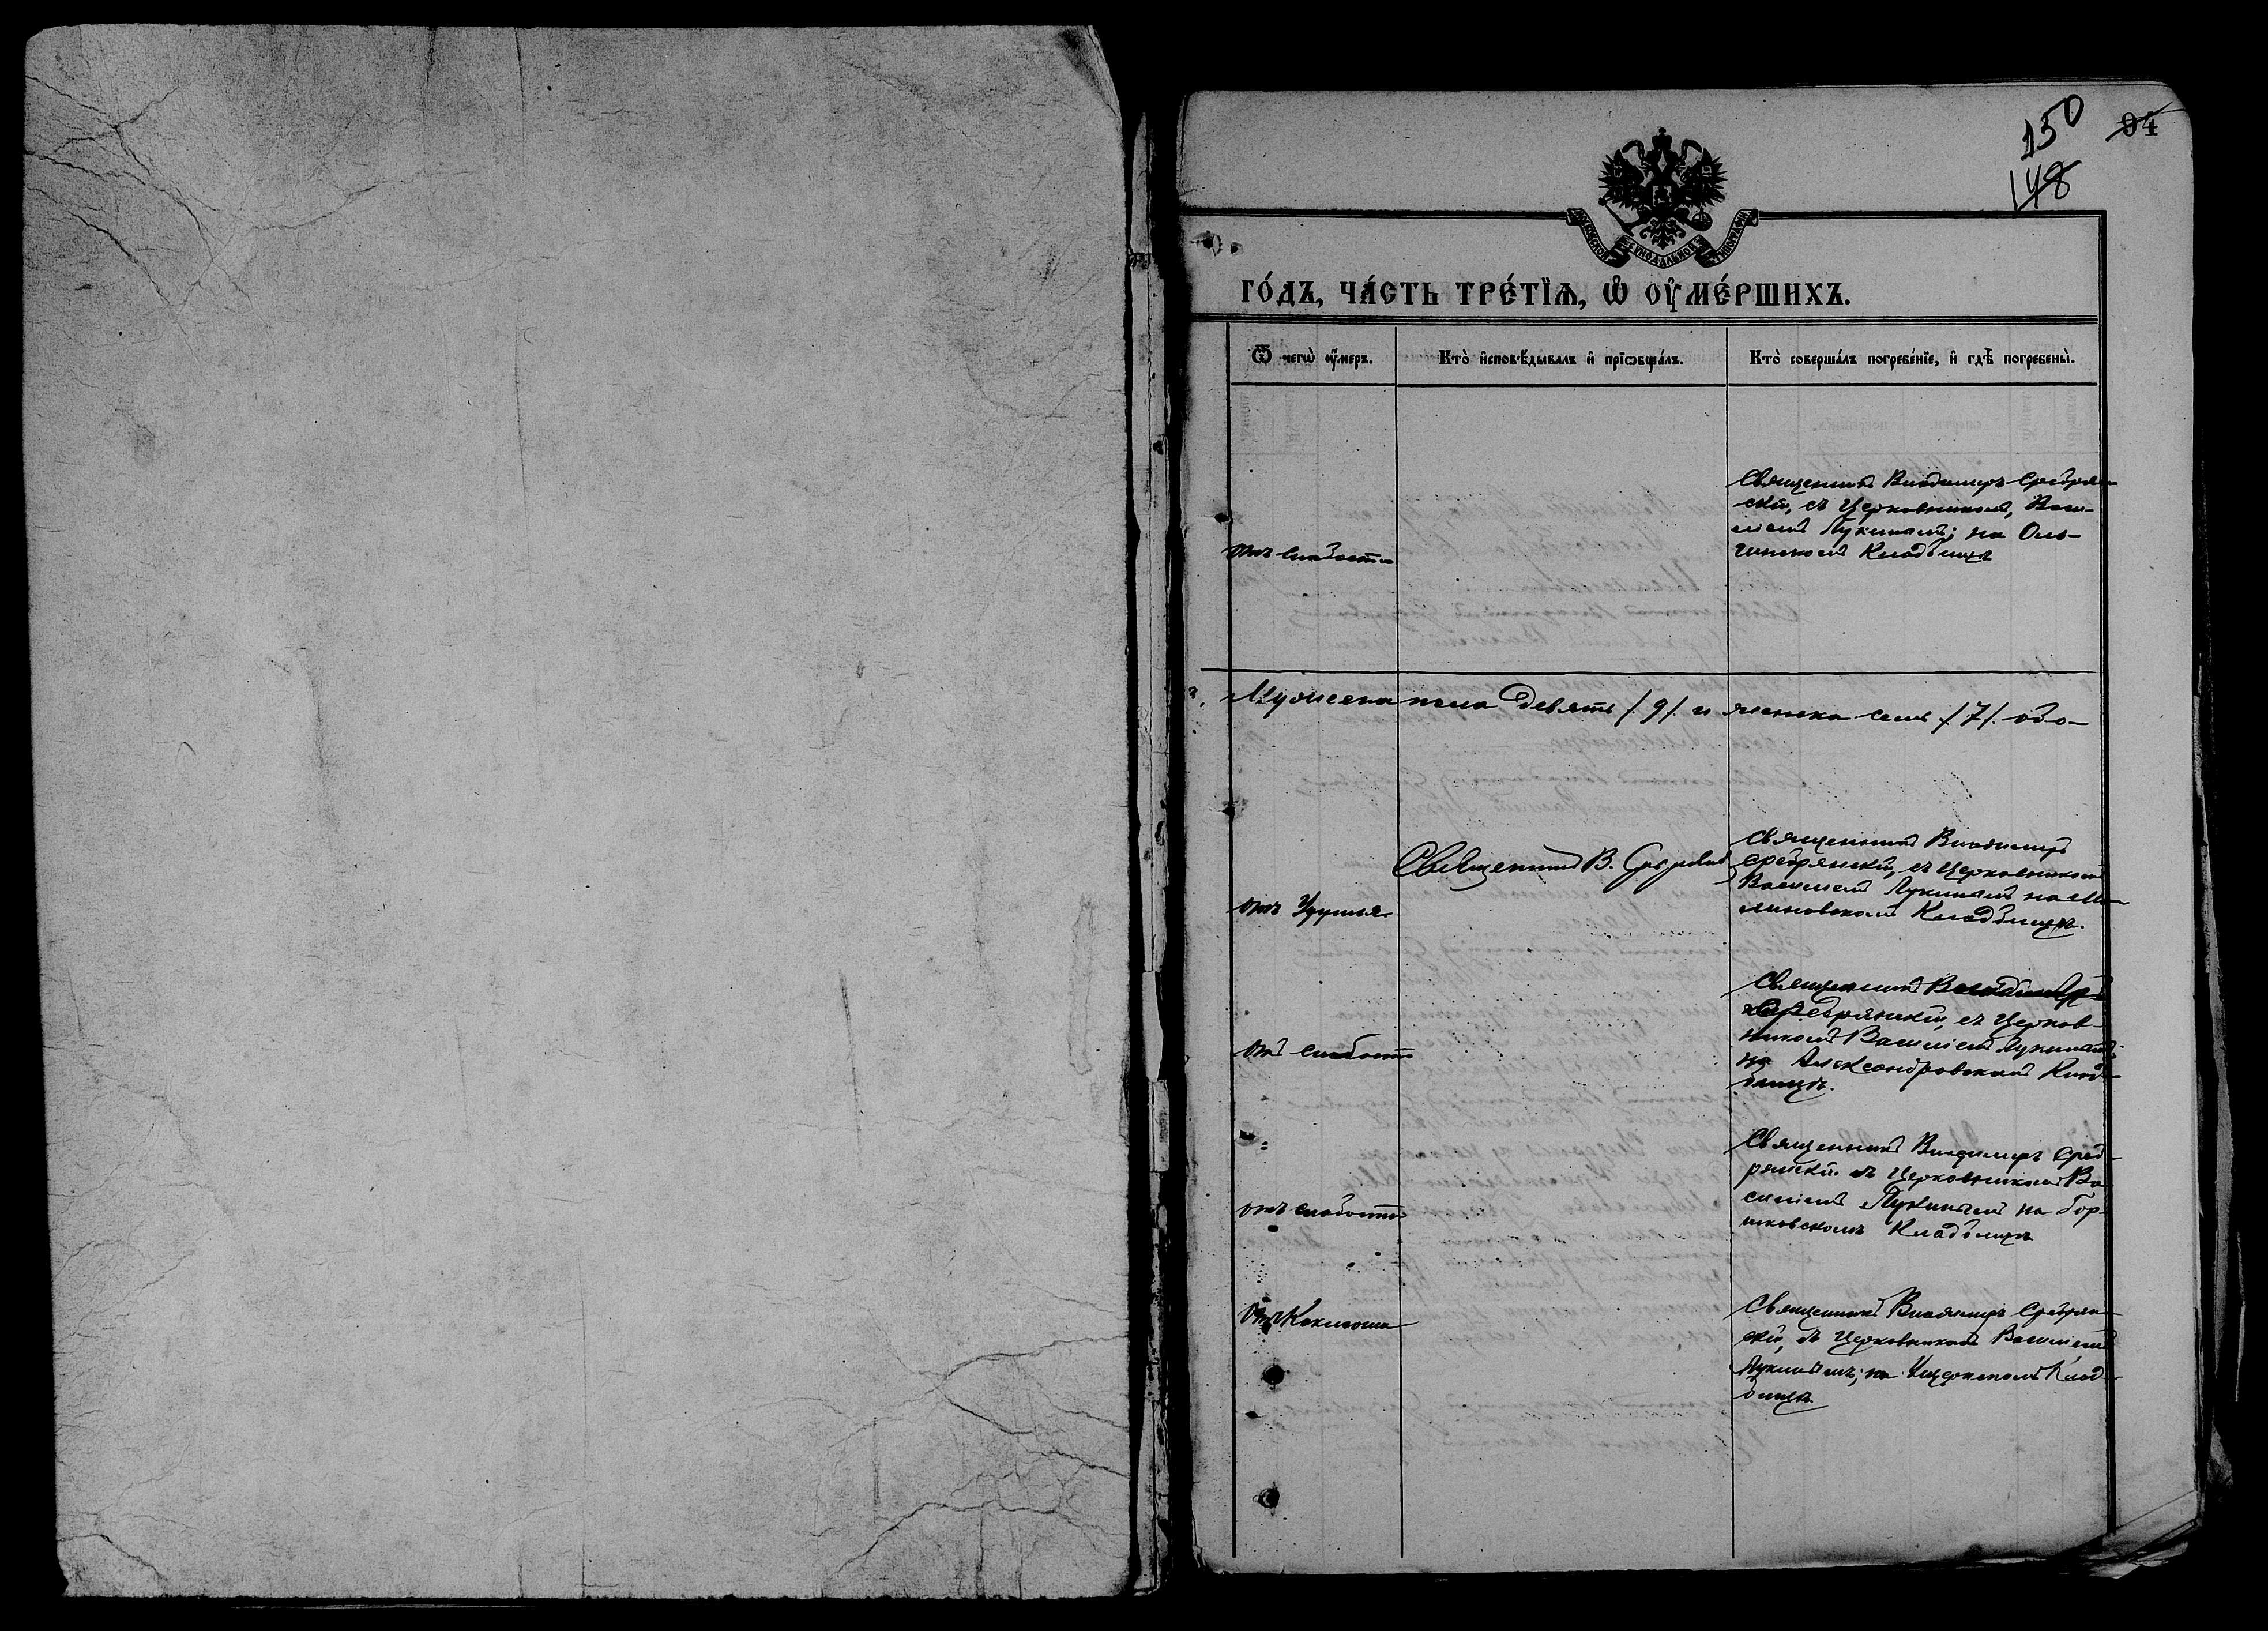 150
94
148
МОСКОВСКОЙ СУНОДАЛЬНОЙ ТИПОГРАФІИ
ГО́ДЪ, ЧА́СТЬ ТРЕ́ТЇѦ, Ѡ҆ ОУ҆МЕ́РШИХЪ.
Ѿ чегѡ̀ оу҆́меръ.
Кто̀ и҆сповѣ́дывалъ и҆ прїѡбща́лъ.
Кто̀ соверша́лъ погребе́нїе, и҆ гдѣ̀ погребены̀.
отъ слабости
Священникъ Владимиръ Сребрян-
скій, съ Церковникомъ, Васи-
ліемъ Лукинымъ; на Оль-
гинскомъ Кладбищѣ
Мужеска пола девять /.9/. и женска семь /.7/. обо-
отъ Удушья
Священникъ В. Сребрянскій
Священникъ Владимиръ
Сребрянскій, съ Церковникомъ
Василіемъ Лукинымъ на
Кладбищѣ.
отъ слабости
Священникъ Владимиръ
Сребрянскій, съ Церков-
никомъ Василіемъ Лукинымъ;
на Александровскомъ Клад-
бищѣ.
отъ слабости
Священникъ Владимиръ Среб-
рянскій съ Церковникомъ Ва-
силіемъ Лукинымъ на Гор-
шковскомъ Кладбищѣ
отъ Коклюша
Священникъ Владимиръ Сребрян-
скій, съ Церковникомъ Василіемъ
Лукинымъ; на Клад-
бищѣ.